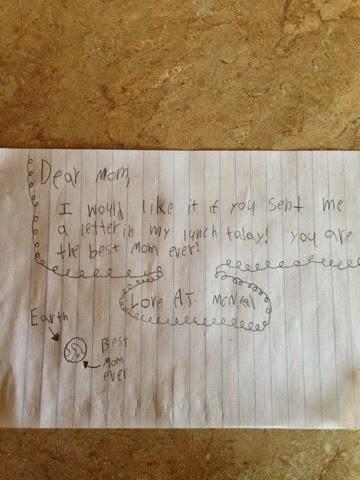 Dear mom,
I would like it if you sent me
a letter in my lunch today! You are
the best Mom ever!
Love A.J. McNeal
Earth
Best
Mom
ever